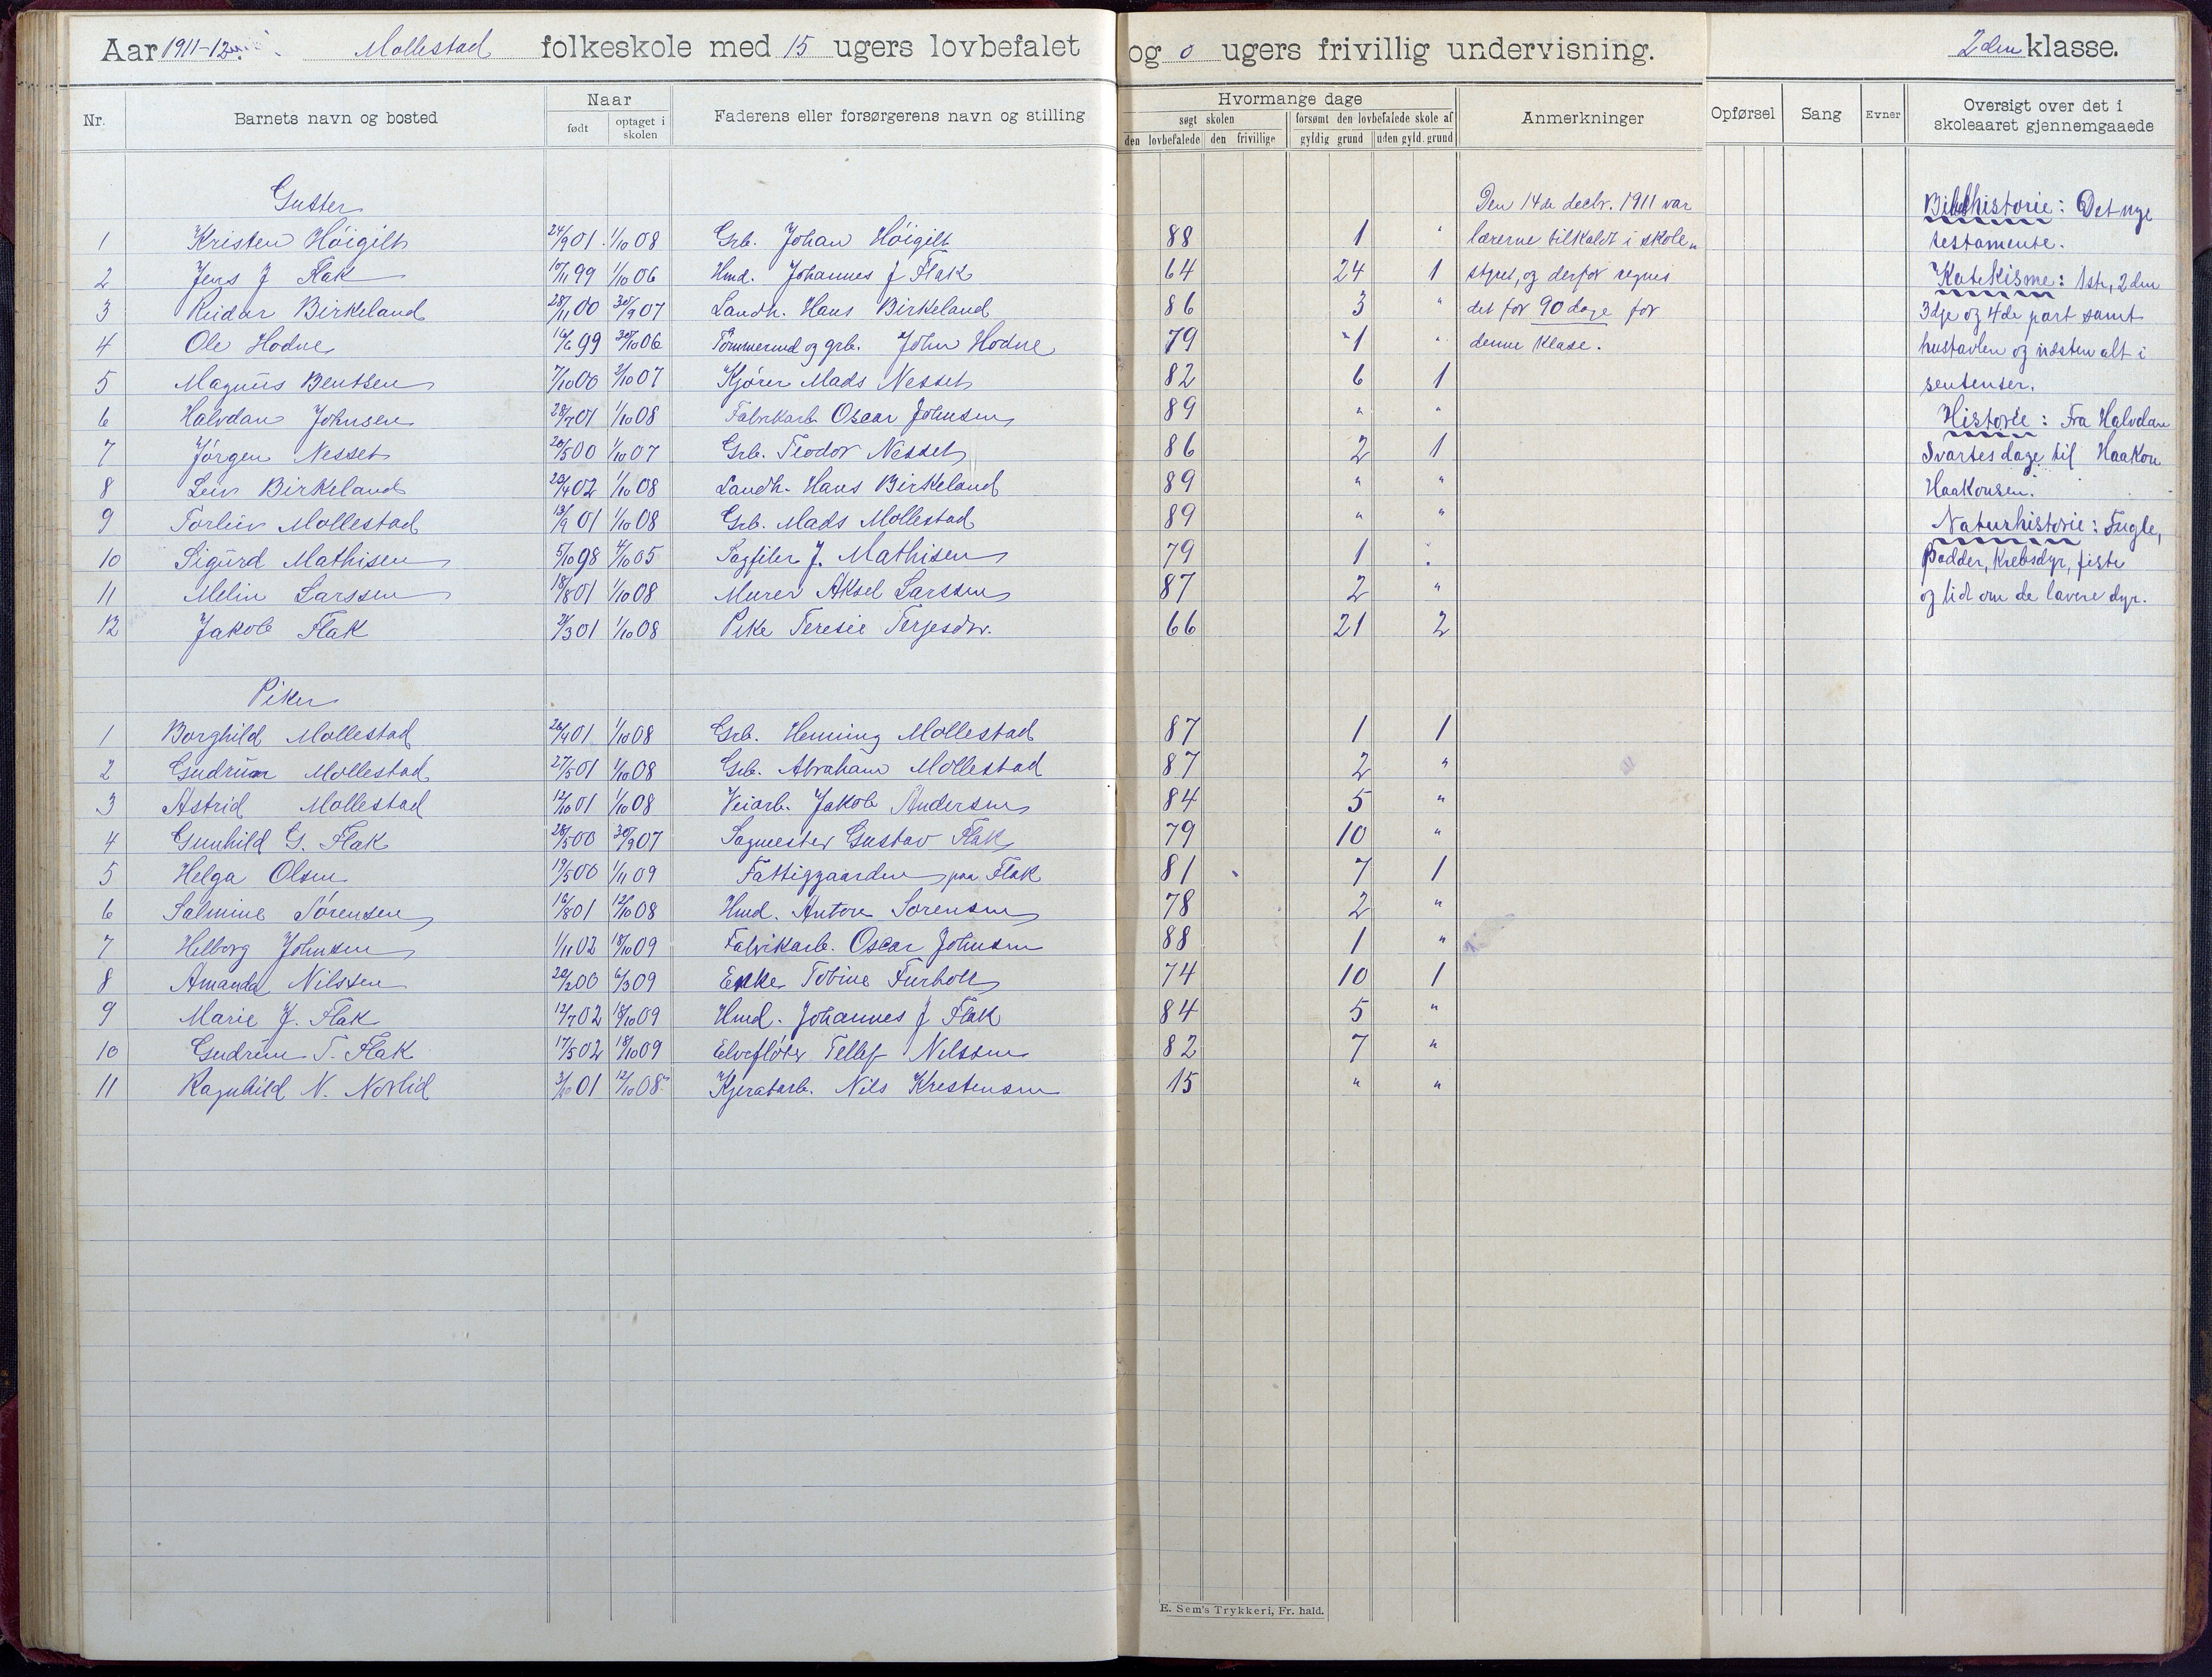 Aar 1911-12 Mollestad folkeskole med 15 ugers lovbefalet og 0 ugers frivillig undervisning. 2den klasse.
Nr. Barnets navn og bosted Naar født optaget i skolen Faderens eller forsørgerens navn og stilling Hvormange dage søgt skolen den lovbefalede den frivillige forsømt den lovbefalede skole af gyldig grund uden gyld. grund Anmerkninger Opførsel Sang Evner Oversigt over det i skoleaaret gjennemgaaede
Gutter
1 Kristen Höigilt 24/9 01 1/10 08 Grb. Johan Höigilt 88 1 "
2 Jens J Flak 10/11 99 1/10 06 Hmd. Johannes J Flak 64 24 1
3 Reidar Birkeland 28/11 00 30/9 07 Landh. Hans Birkeland 86 3 "
4 Ole Hodne 16/6 99 30/10 06 Tömmermd og grb. John Hodne 79 1 "
5 Magnus Bentsen 7/10 00 2/10 07 Kjörer Mads Nesset 82 6 1
6 Halvdan Johnsen 28/7 01 1/10 08 Fabrikarb. Oscar Johnsen 89 " "
7 Jörgen Nesset 20/5 00 1/10 07 Grb. Teodor Nesset 86 2 1
8 Leiv Birkeland 20/4 02 1/10 08 Landh. Hans Birkeland 89 " "
9 Torleiv Mollestad 13/9 01 1/10 08 Grb. Mads Mollestad 89 " "
10 Sigurd Mathisen 5/10 98 4/10 05 Sagfiler J. Mathisen 79 1 "
11 Melin Larssen 18/8 01 1/10 08 Murer Aksel Larssen 87 2 "
12 Jakob Flak 2/3 01 1/10 08 Pike Teresie Terjesdtr. 66 21 2
Piker
1 Borghild Mollestad 26/4 01 1/10 08 Grb. Henning Mollestad 87 1 1
2 Gudrun Mollestad 27/5 01 1/10 08 Grb. Abraham Mollestad 87 2 "
3 Astrid Mollestad 12/10 01 1/10 08 Veiarb. Jakob Andersen 84 5 "
4 Gunhild G. Flak 28/5 00 30/9 07 Sagmester Gustav Flak 79 10 "
5 Helga Olsen 19/5 00 1/11 09 Fattiggaarden paa Flak 81 7 1
6 Salmine Sörensen 16/8 01 12/10 08 Hmd. Antore Sorensen 78 2 "
7 Helborg Johnsen 1/11 02 18/10 09 Fabrikarb. Oscar Johnsen 88 1 "
8 Amanda Nilsten 20/2 00 6/3 09 Enke Tobine Furholt 74 10 1
9 Marie J. Flak 12/7 02 18/10 09 Hmd. Johannes J Flak 84 5 "
10 Gudrun T. Flak 17/5 02 18/10 09 Elveflöter Tellef Nilssen 82 7 "
11 Ragnhild N. Norlid 3/10 01 12/10 08 Kjeratarb. Nils Kristensen 15 " "
Den 14de decbr. 1911 var
lærerne tilkaldt i skole„
styret, og derfor regnes
det for 90 dage for
denne klase.
Bibelhistorie: Det nye
testamente.
Katekisme: 1ste, 2den
3dje og 4de part samt
hustavlen og næsten alt i
sentenser.
Historie: Fra Halvdan
Svartes dage til Haakon
Haakonsen.
Naturhistorie: Fugle,
Padder, Krebsdyr, fiske
og lidt om de lavere dyr.
E. Sem's Trykkeri, Fr. hald.